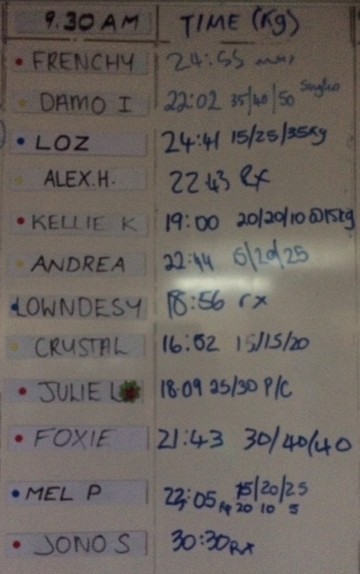 9.30 AM TIME (Kg)
FRENCHY 24:55
DAMO I 22:02 35/40/50 Singles
LOZ 24:41 15/25/35kg
ALEX.H. 22:43 Rx
KELLIE K 19:00 20/20/10 @15kg
ANDREA 22:44 5/20/25
LOWNDESY 18:56 rx
CRYSTAL 16:02 15/15/20
JULIE L 18:09 25/30 P/C
FOXIE 21:43 30/40/40
MEL P 23:05 15/20/25
20 10 5
JONO S 30:30 Rx